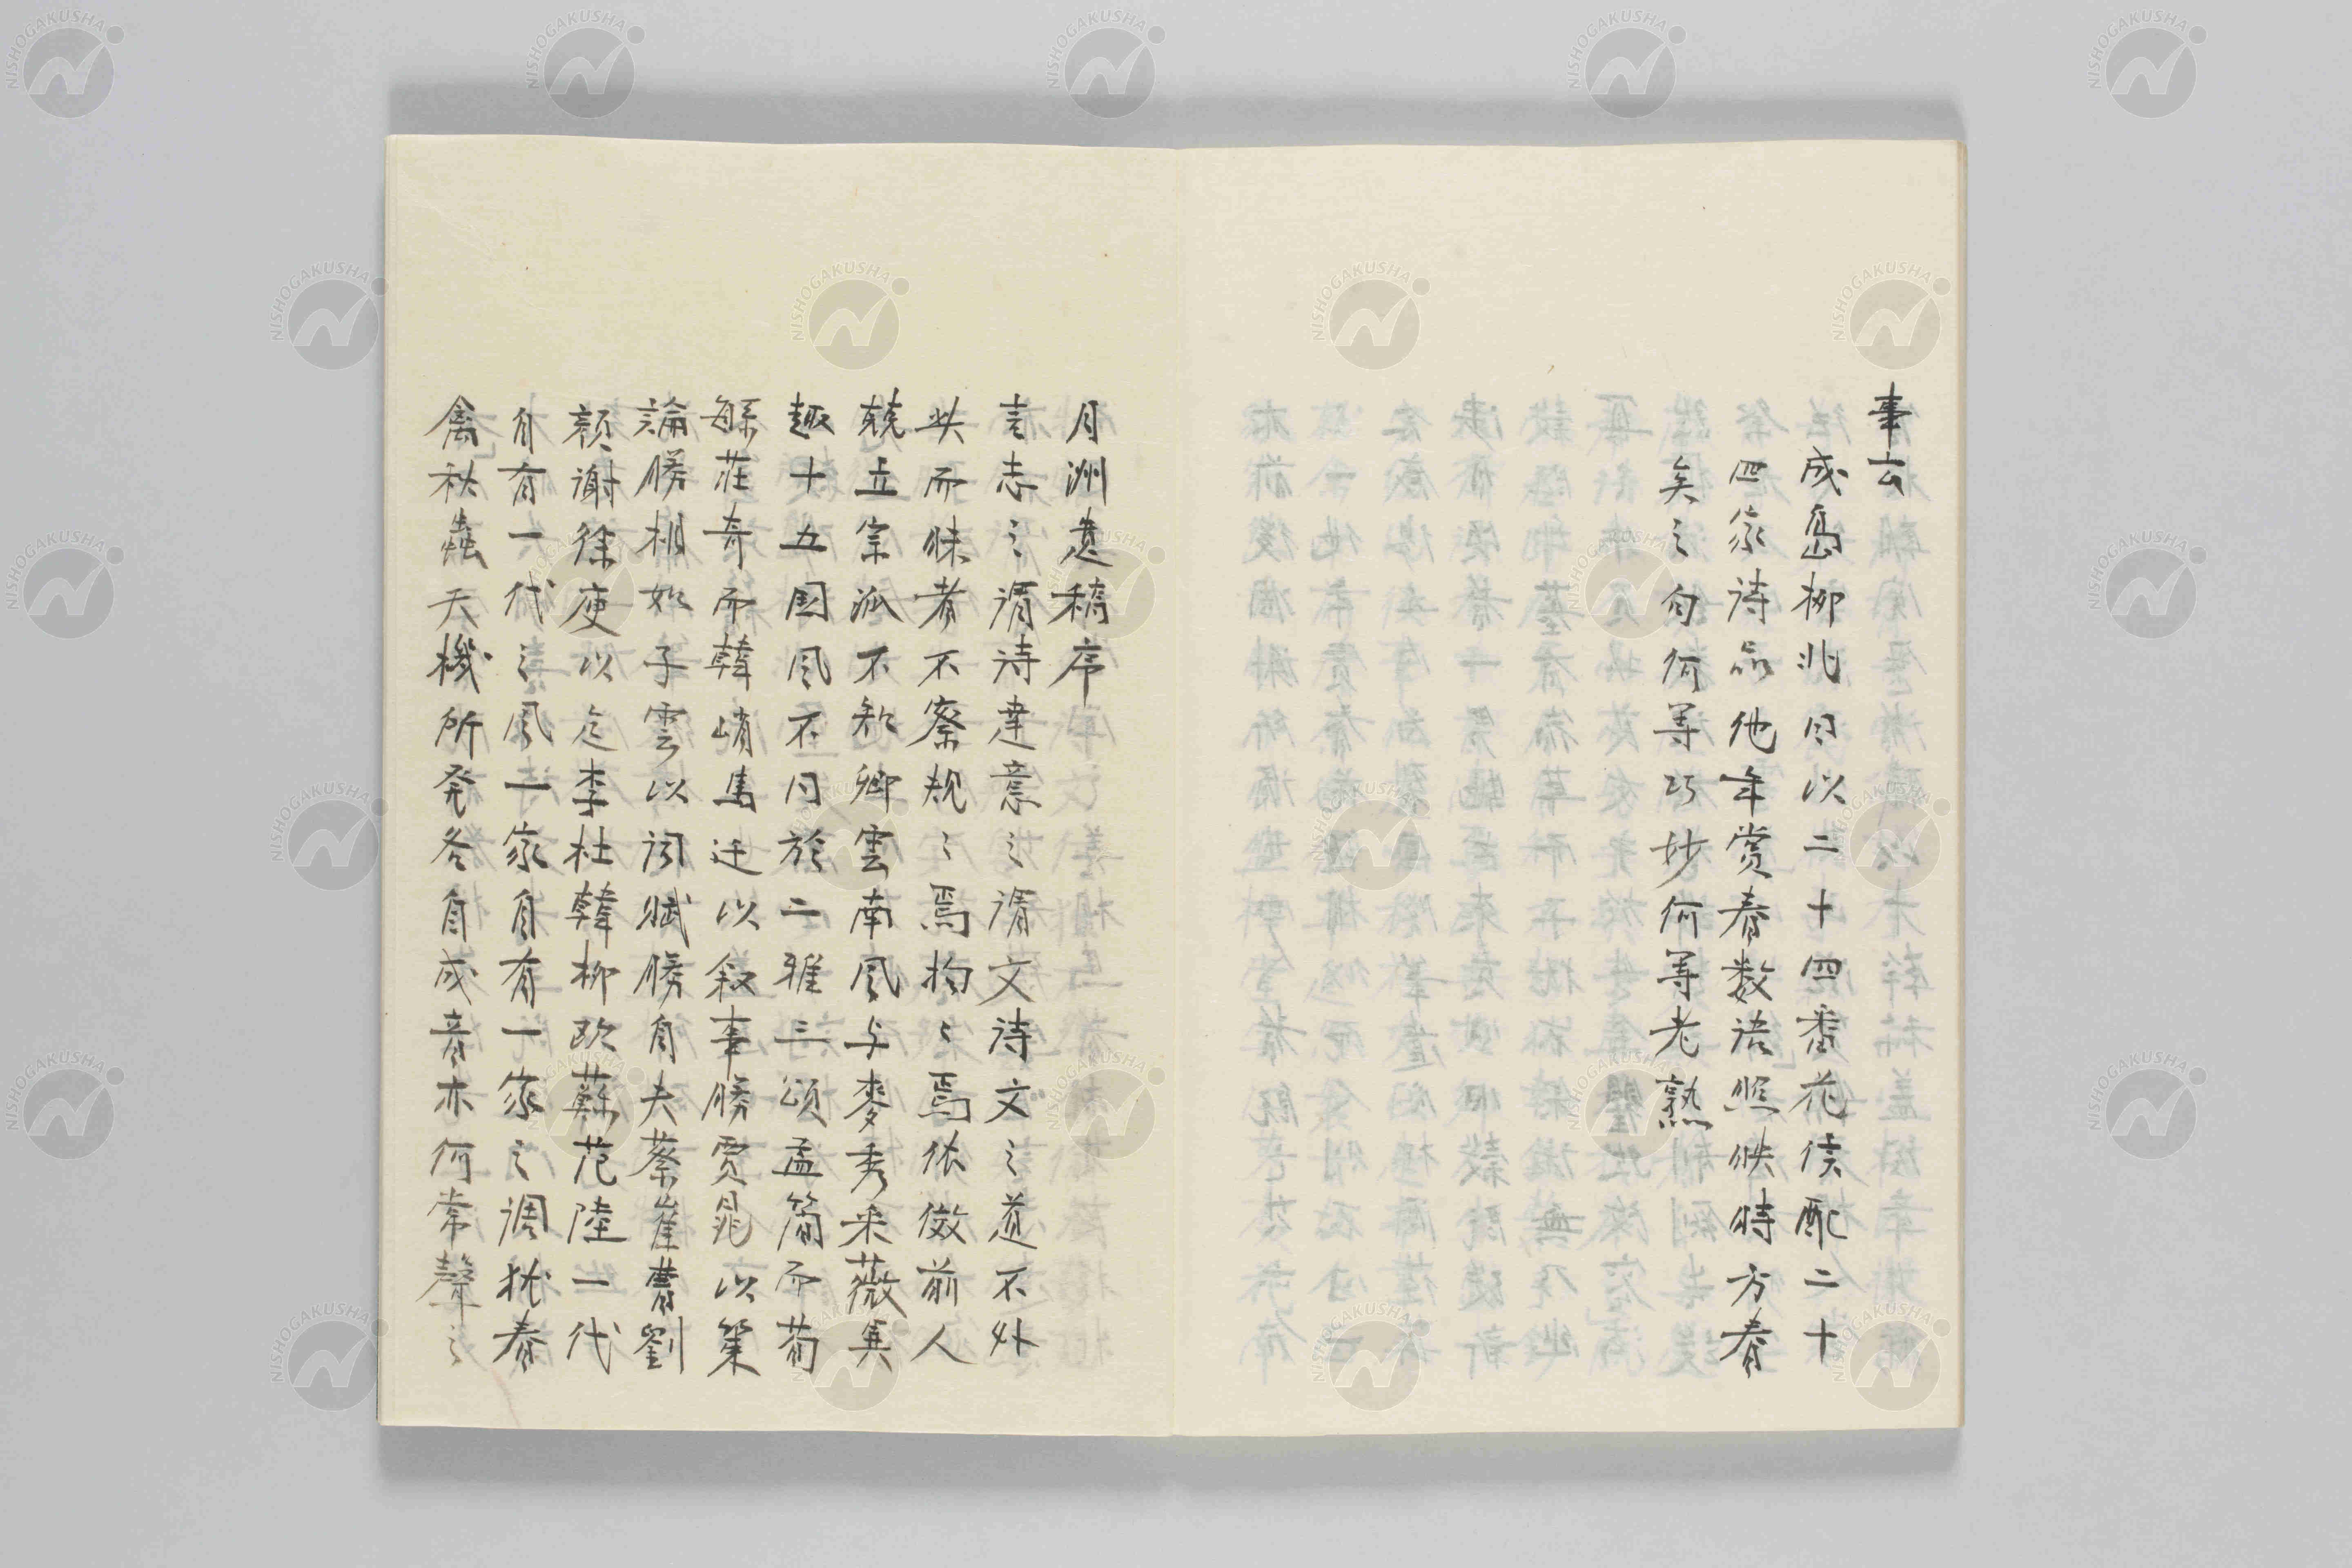 事云
成島柳北曰以二十四番花信配二十
四家詩品他年賞春数語照映時方春
矣之句何等巧妙何等老熟
月洲遺稿序
言志之謂詩達意之謂文詩文之道不外
此而昧者不察規〻焉拘〻焉依倣前人
競立宗派不知卿雲南風与麥秀采薇異
趣十五国風不同於二雅三頌孟簡而荀
繇荘奇而韓峭馬迁以叙事勝賈晁以策
論勝相如子雲以詞賦勝自夫蔡崔曹劉
顔謝徐庾以迄李杜韓柳欧蘇范陸一代
自有一代之風一家自有一家之調猶春
禽秋蟲天機所発各自成音亦何常聲之
NISHOGAKUSHA